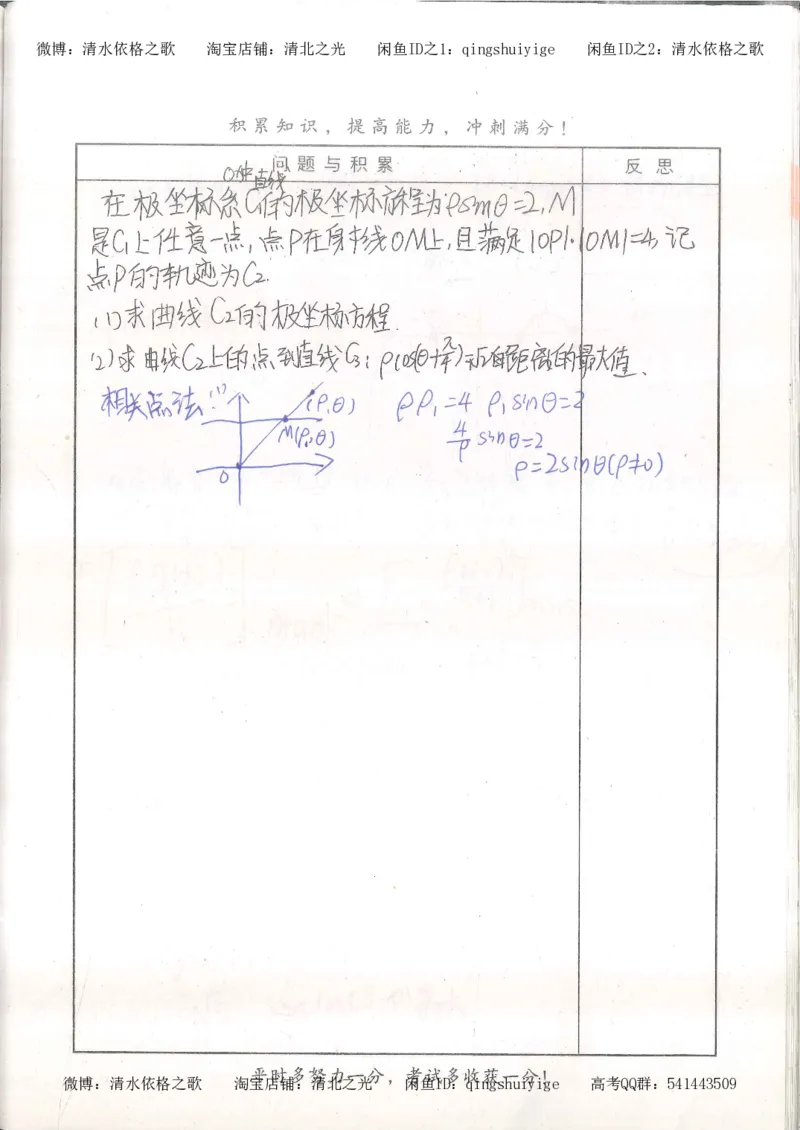 微博：清水依格之歌 淘宝店铺：清北之光 闲鱼ID之1：qingshuiyige 闲鱼ID之2：清水依格之歌
积累知识，提高能力，冲刺满分！
问题与积累 反思
直线
在极坐标系C₁的极坐标方程为ρsinθ=2，M
是C₁上任意一点，点P在射线OM上，且满足|OP|·|OM|=4，记
点P的轨迹为C₂.
(1)求曲线C₂的极坐标方程.
(2)求曲线C₂上的点到直线C₃：ρcos(θ+π/4)=√2的距离的最大值.
相关点法：(1) (ρ,θ) ρρ₁=4 ρ₁sinθ=2
M(ρ₁,θ) 4/ρ sinθ=2
O ρ=2sinθ(ρ≠0)
平时多努力一分，考试多收获一分！
微博：清水依格之歌 淘宝店铺：清北之光 闲鱼ID之1：qingshuiyige 高考QQ群：541443509